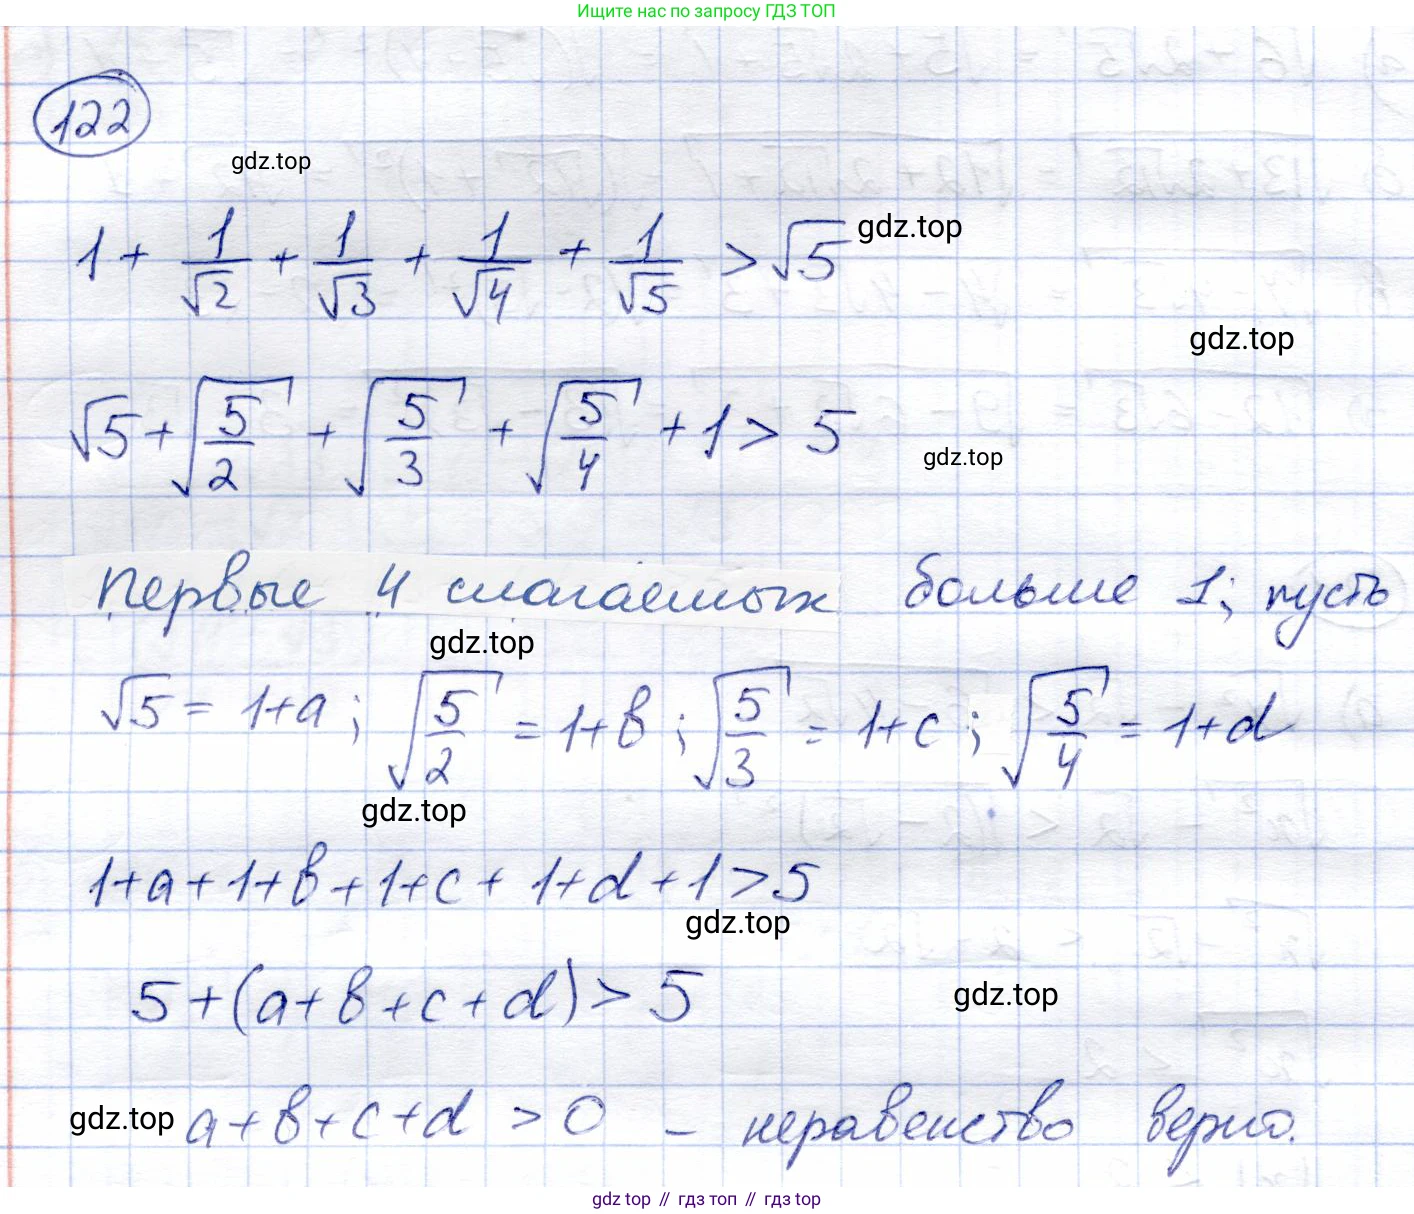 Ищите нас по запросу ГДЗ ТОП
122
gdz.top
1 + 1/√2 + 1/√3 + 1/√4 + 1/√5 > √5 gdz.top
gdz.top
√5 + √(5/2) + √(5/3) + √(5/4) + 1 > 5
gdz.top
Первые 4 слагаемых больше 1; пусть
gdz.top
√5 = 1+a; √(5/2) = 1+b; √(5/3) = 1+c; √(5/4) = 1+d
gdz.top
1+a+1+b+1+c+1+d+1>5
gdz.top
5+(a+b+c+d)>5
gdz.top
gdz.top a+b+c+d >0 – неравенство верно.
gdz top // гдз топ // гдз top